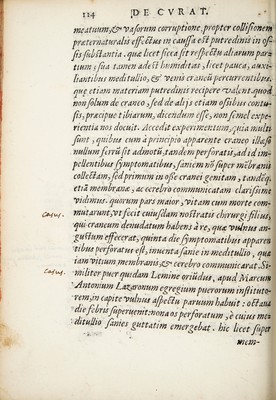 124 DE CVRAT.
meatuum, & vasorum corruptione, propter collisionem
præternaturalis effectus in caussa est putredinis in os-
sis substantia. quæ licet sicca sit respectu aliarum par-
tium; sua tamen adest humiditas, licet pauca, auxi-
liantibus meditullio, & venis craneū percurrentibus.
que etiam materiam putredinis recipere valent. quod
non solum de craneo, sed de alijs etiam ossibus contu-
sis, præcipue tibiarum, dicendum esse, non semel expe-
rientia nos docuit. Accedit experimentum, quia multi
sunt, quibus cum à principio apparente craneo illæso
nullum ferrū sit admotū, tandem perforatis, ad id im-
pellentibus symptomatibus, saniem nō super mēbranis
collectam, sed primum in osse cranei genitam, tandēq.
etiā membranæ, ac cerebro communicatam clarissimè
vidimus. quorum pars maior, vitam cum morte com-
Casus. mutarunt, vt fecit cuiusdam nostratis chirurgi filius,
qui craneum denudatum habens à re, quæ vulnus an-
gustum effecerat, quinta die symptomatibus apparen
tibus perforatus est, inuenta sanie in meditullio, quæ
iam vitium membranis, & cerebro communicarat. Si-
Casus. militer puer quidam Lemine oriūdus, apud Marcum
Antonium Lazaronum egregium puerorum instituto-
rem, in capite vulnus aspectu paruum habuit: octaua
die febris superuenit: nona os perforatum, è cuius me-
ditullio sanies guttatim emergebat. hic licet super
mem-